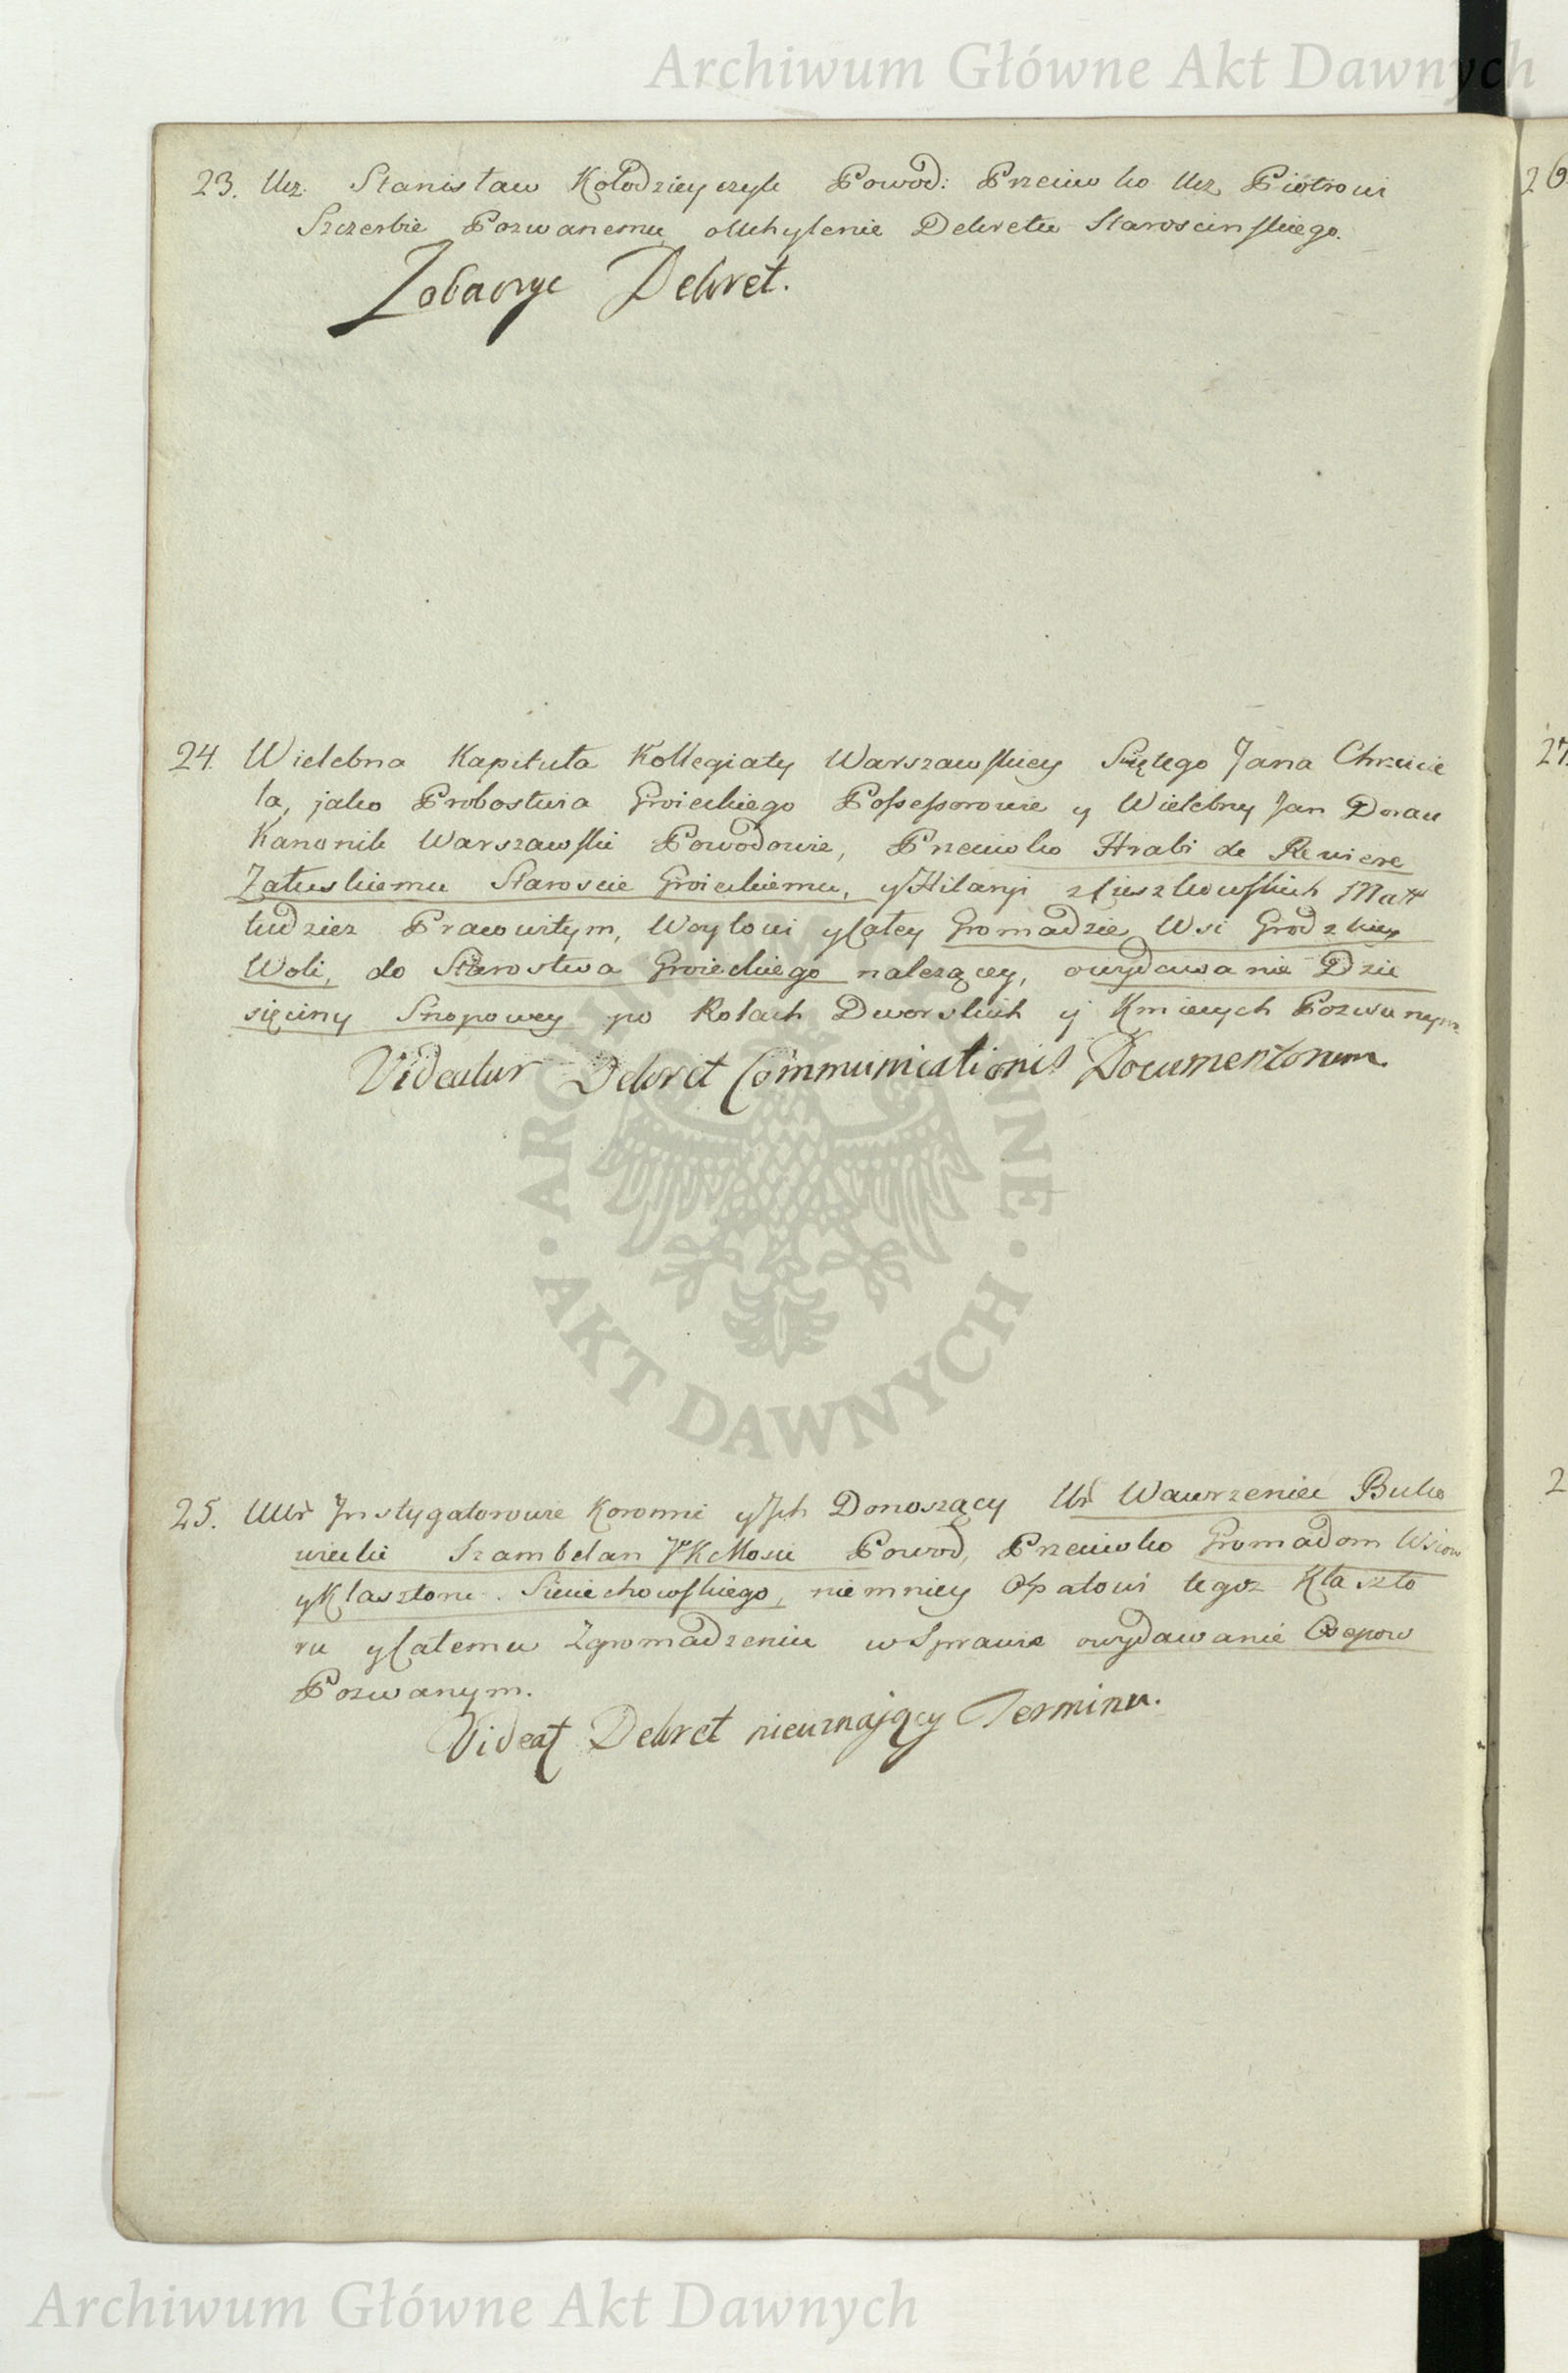 Archiwum Główne Akt Dawnych
23. Ucz. Stanisław Kołodzieyczyk Powod: Przeciwko Ucz Piotrowi
Szczerbie Pozwanemu, o Uchylenie Dekretu Staroscinskiego.
Zobaczyc Dekret.
24. Wielebna Kapituła Kollegiaty Warszawskiey Swiętego Jana Chrzcicie
la, jako Probostwa Groieckiego Possessorowie y Wielebny Jan
Kanonik Warszawski Powodowie, Przeciwko Hrabi de
Załuskiemu Staroscie Groieckiemu, y Hilaryi z Cieszkowskich Małż
tudziez Pracowitym, Woytowi y całey Gromadzie Wsi Grodzkiey
Woli, do Starostwa Groieckiego nalezącey, o wydawanie Dzie
sięciny Snopowey po Rolach Dworskich y Kmiecych Pozwanym
Videatur Dekret Communicationis Documentorum.
25. UUr Jnstygatorowie Koronni y Jch Donoszący Ur Wawrzeniec Buko
wiecki Szambelan JKMosci Powod, Przeciwko Gromadom Wsiow
y Klasztoru Sieciechowskiego, niemniey Opatowi tegoz Klaszto
ru y całemu Zgromadzeniu w Sprawie o wydawanie Osepow
Pozwanym.
Videat Dekret nieuznający Terminu.
26
27.
2
ARCHIWUM GŁÓWNE · AKT DAWNYCH ·
Archiwum Główne Akt Dawnych